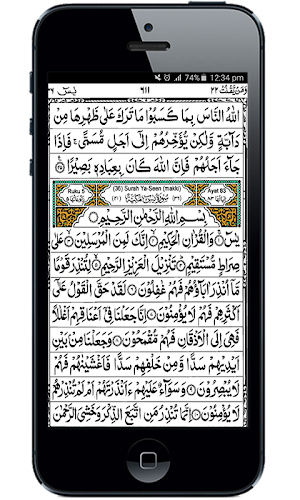 74% 12:34 pm
وَمَنْ يَّقْنُتْ ٢٢ ٦١١ يٰسٓ
اللّٰهُ النَّاسَ بِمَا كَسَبُوْا مَا تَرَكَ عَلٰى ظَهْرِهَا مِنْ
دَآبَّةٍ وَّلٰكِنْ يُّؤَخِّرُهُمْ اِلٰٓى اَجَلٍ مُّسَمًّى ۚ فَاِذَا
جَآءَ اَجَلُهُمْ فَاِنَّ اللّٰهَ كَانَ بِعِبَادِهٖ بَصِيْرًا
Ruku 5 (36) Surah Ya-Seen (makki) Ayat 83
بِسْمِ اللّٰهِ الرَّحْمٰنِ الرَّحِيْمِ
يٰسٓ ۚ وَالْقُرْاٰنِ الْحَكِيْمِ ۙ اِنَّكَ لَمِنَ الْمُرْسَلِيْنَ ۙ عَلٰى
صِرَاطٍ مُّسْتَقِيْمٍ ؕ تَنْزِيْلَ الْعَزِيْزِ الرَّحِيْمِ ۙ لِتُنْذِرَ قَوْمًا
مَّآ اُنْذِرَ اٰبَآؤُهُمْ فَهُمْ غٰفِلُوْنَ لَقَدْ حَقَّ الْقَوْلُ عَلٰٓى
اَكْثَرِهِمْ فَهُمْ لَا يُؤْمِنُوْنَ اِنَّا جَعَلْنَا فِيْٓ اَعْنَاقِهِمْ اَغْلٰلًا
فَهِيَ اِلَى الْاَذْقَانِ فَهُمْ مُّقْمَحُوْنَ وَجَعَلْنَا مِنْۢ بَيْنِ
اَيْدِيْهِمْ سَدًّا وَّمِنْ خَلْفِهِمْ سَدًّا فَاَغْشَيْنٰهُمْ فَهُمْ
لَا يُبْصِرُوْنَ وَسَوَآءٌ عَلَيْهِمْ ءَاَنْذَرْتَهُمْ اَمْ لَمْ تُنْذِرْهُمْ
لَا يُؤْمِنُوْنَ اِنَّمَا تُنْذِرُ مَنِ اتَّبَعَ الذِّكْرَ وَخَشِيَ الرَّحْمٰنَ